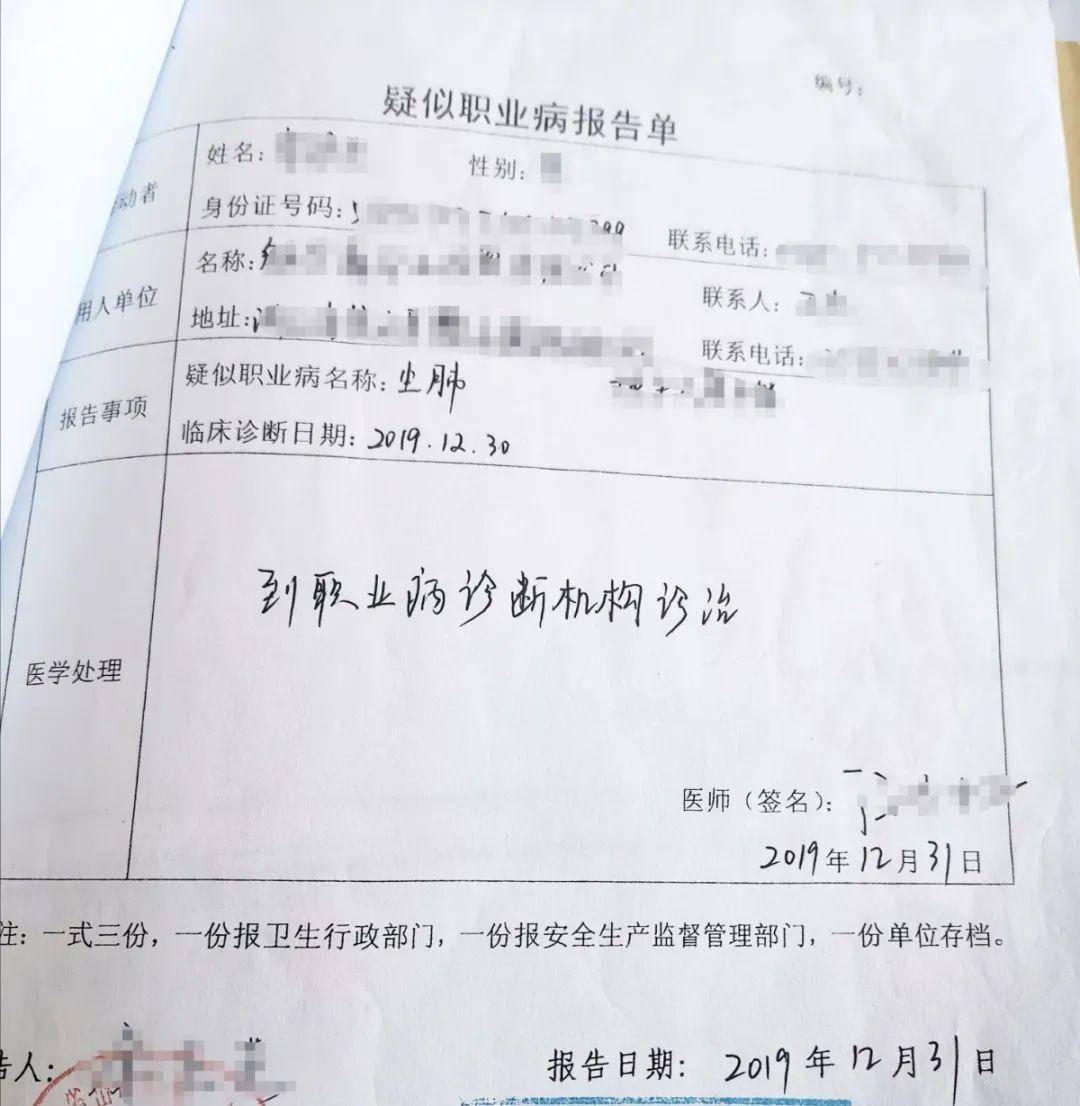 编号:
疑似职业病报告单
动者
姓名:
性别:
身份证号码:
联系电话:
用人单位
名称:
联系人:
地址:
联系电话:
报告事项
疑似职业病名称: 尘肺
临床诊断日期: 2019.12.30
医学处理
到职业病诊断机构诊治
医师（签名）:
2019年12月31日
注: 一式三份，一份报卫生行政部门，一份报安全生产监督管理部门，一份单位存档。
告人:
报告日期: 2019年12月31日